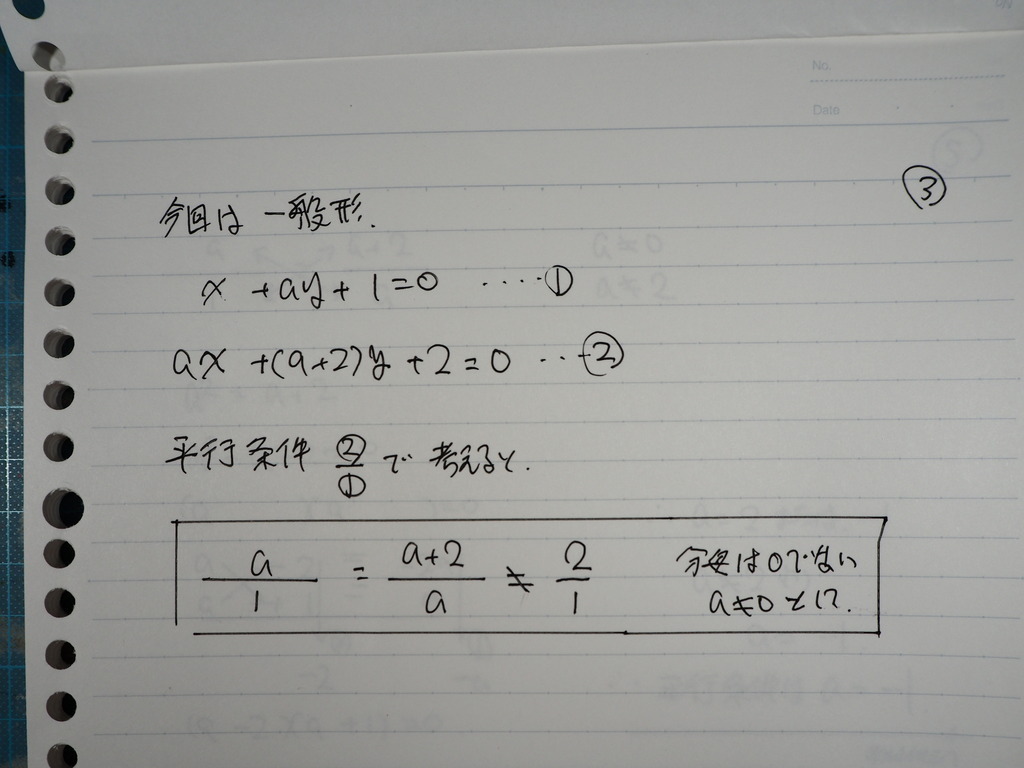 No.
Date
③
今回は 一般形.
x + ay + 1 = 0 ・・・・①
ax + (a+2)y + 2 = 0 ・・・②
平行条件 ②/① で 考えると.
a/1 = (a+2)/a ≠ 2/1
分母は0でない
a≠0 とし.